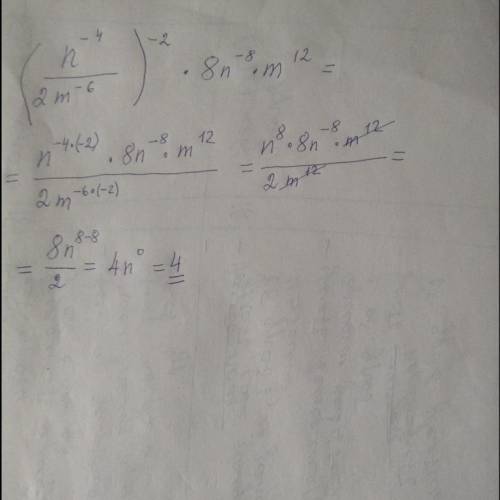 (n^{-4} / 2m^{-6})^{-2} · 8n^{-8} · m^{12} =
= n^{-4·(-2)} · 8n^{-8} · m^{12} / 2m^{-6·(-2)} = n^8 · 8n^{-8} · m^{12} / 2m^{12} =
= 8n^{8-8} / 2 = 4n^0 = 4